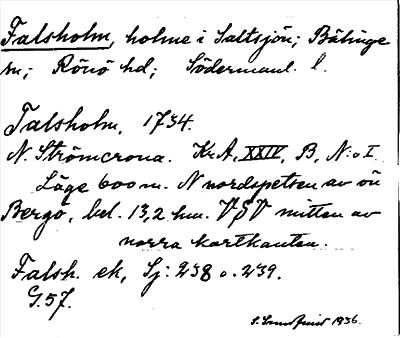 Falsholm, holme i Saltsjön; Bälinge
sn; Rönö hd; Södermanl. l.
Falsholm, 1734.
N. Strömcrona. Kr.A, XXIV, B, N:o I
Läge 600 m. N nordspetsen av ön
Bergö, bel. 13,2 km. VSV mitten av
norra kartkanten.
Falsh. ek, Sj: 238 o. 239.
G. 57.
1936.